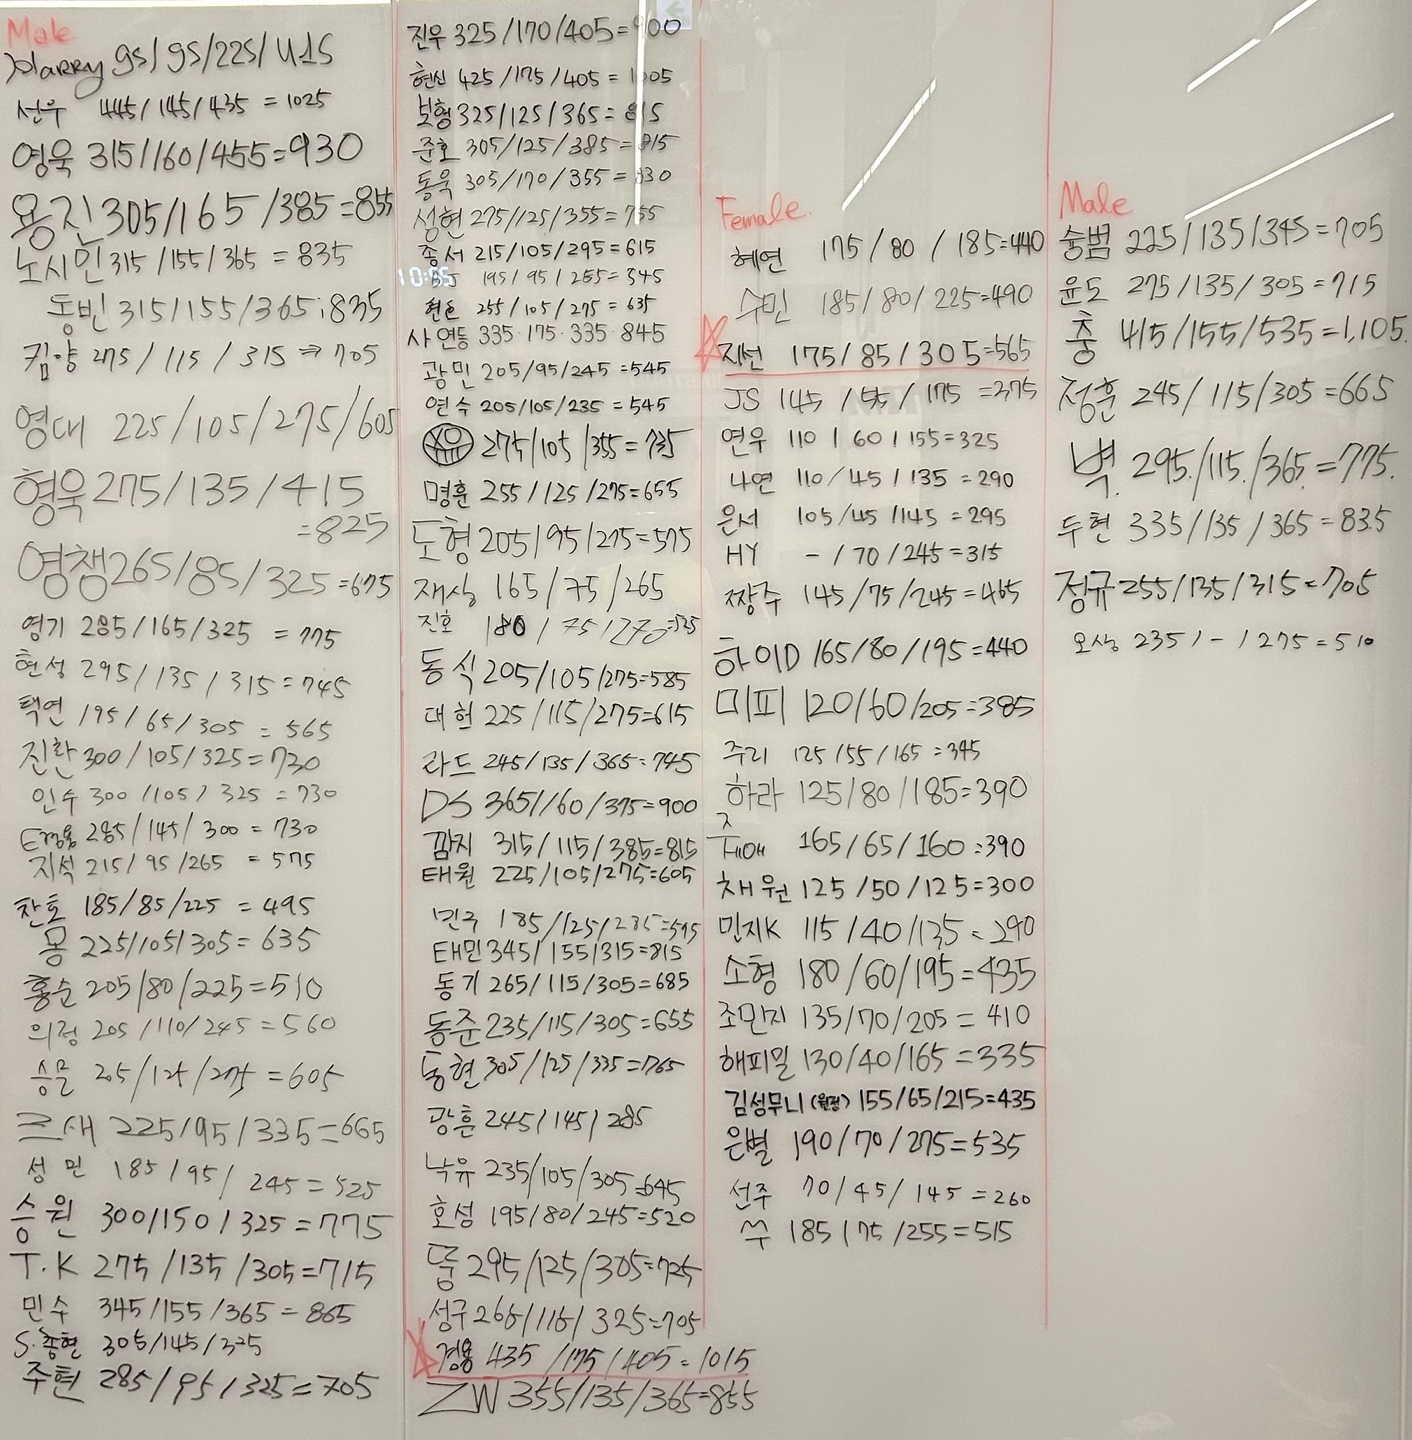 Male
Harry 95/95/225/415
선우 445/145/435 = 1025
영욱 315/160/455=930
용진 305/165/385=855
노시민 315/155/365 = 835
동빈 315/155/365:835
킴양 275/115/315 ⇒ 705
영대 225/105/275/605
형욱 275/135/415
=825
영챙 265/85/325=675
영기 285/165/325 = 775
현성 295/135/315=745
택연 195/65/305 = 565
진환 300/105/325=730
인수 300/105/325=730
285/145/300=730
지석 215/95/265 = 575
찬호 185/85/225 = 495
몽 225/105/305=635
홍순 205/80/225=510
의정 205/110/245=560
승문 205/125/275=605
르새 225/95/335=665
성민 185/95/245=525
승원 300/150/325=775
T.K 275/135/305=715
민수 345/155/365=865
S.종현 305/145/325
주현 285/95/325=705
진우 325/170/405=900
현신 425/175/405=1005
보형 325/125/365=815
준호 305/125/385=815
동욱 305/170/355=830
성현 275/125/355=755
종서 215/105/295=615
195/95/255=545
255/105/275=635
사연등 335·175·335·845
광민 205/95/245=545
연수 205/105/235=545
275/105/355=735
명훈 255/125/275=655
도형 205/95/275=575
재상 165/75/265
진호 180/75/270=525
동식 205/105/275=585
대헌 225/115/275=615
라드 245/135/365=745
DS 365/160/375=900
깜지 315/115/385=815
태원 225/105/275=605
민구 185/125/285=595
태민 345/155/315=815
동기 265/115/305=685
동준 235/115/305=655
동현 305/125/335=765
광훈 245/145/285
낙유 235/105/305=645
호섬 195/80/245=520
뚱 295/125/305=725
성구 265/115/325=705
경용 435/175/405=1015
ZW 355/135/365=855
Female
혜연 175/80/185=440
수민 185/80/225=490
지선 175/85/305=565
JS 145/55/175=375
연우 110/60/155=325
나연 110/45/135=290
은서 105/45/145=295
HY -/70/245=315
짱수 145/75/245=465
하이D 165/80/195=440
미피 120/60/205=385
주리 125/55/165=345
하라 125/80/185=390
165/65/160=390
채원 125/50/125=300
민지K 115/40/135=290
소형 180/60/195=435
조민지 135/70/205=410
해피밀 130/40/165=335
김성무니(원정) 155/65/215=435
은별 190/70/275=535
선주 70/45/145=260
쑤 185/75/255=515
Male
숭범 225/135/345=705
윤도 275/135/305=715
충 415/155/535=1,105.
정훈 245/115/305=665
벽. 295/115/365=775.
두현 335/135/365=835
정규 255/135/315=705
오상 235/-/275=510